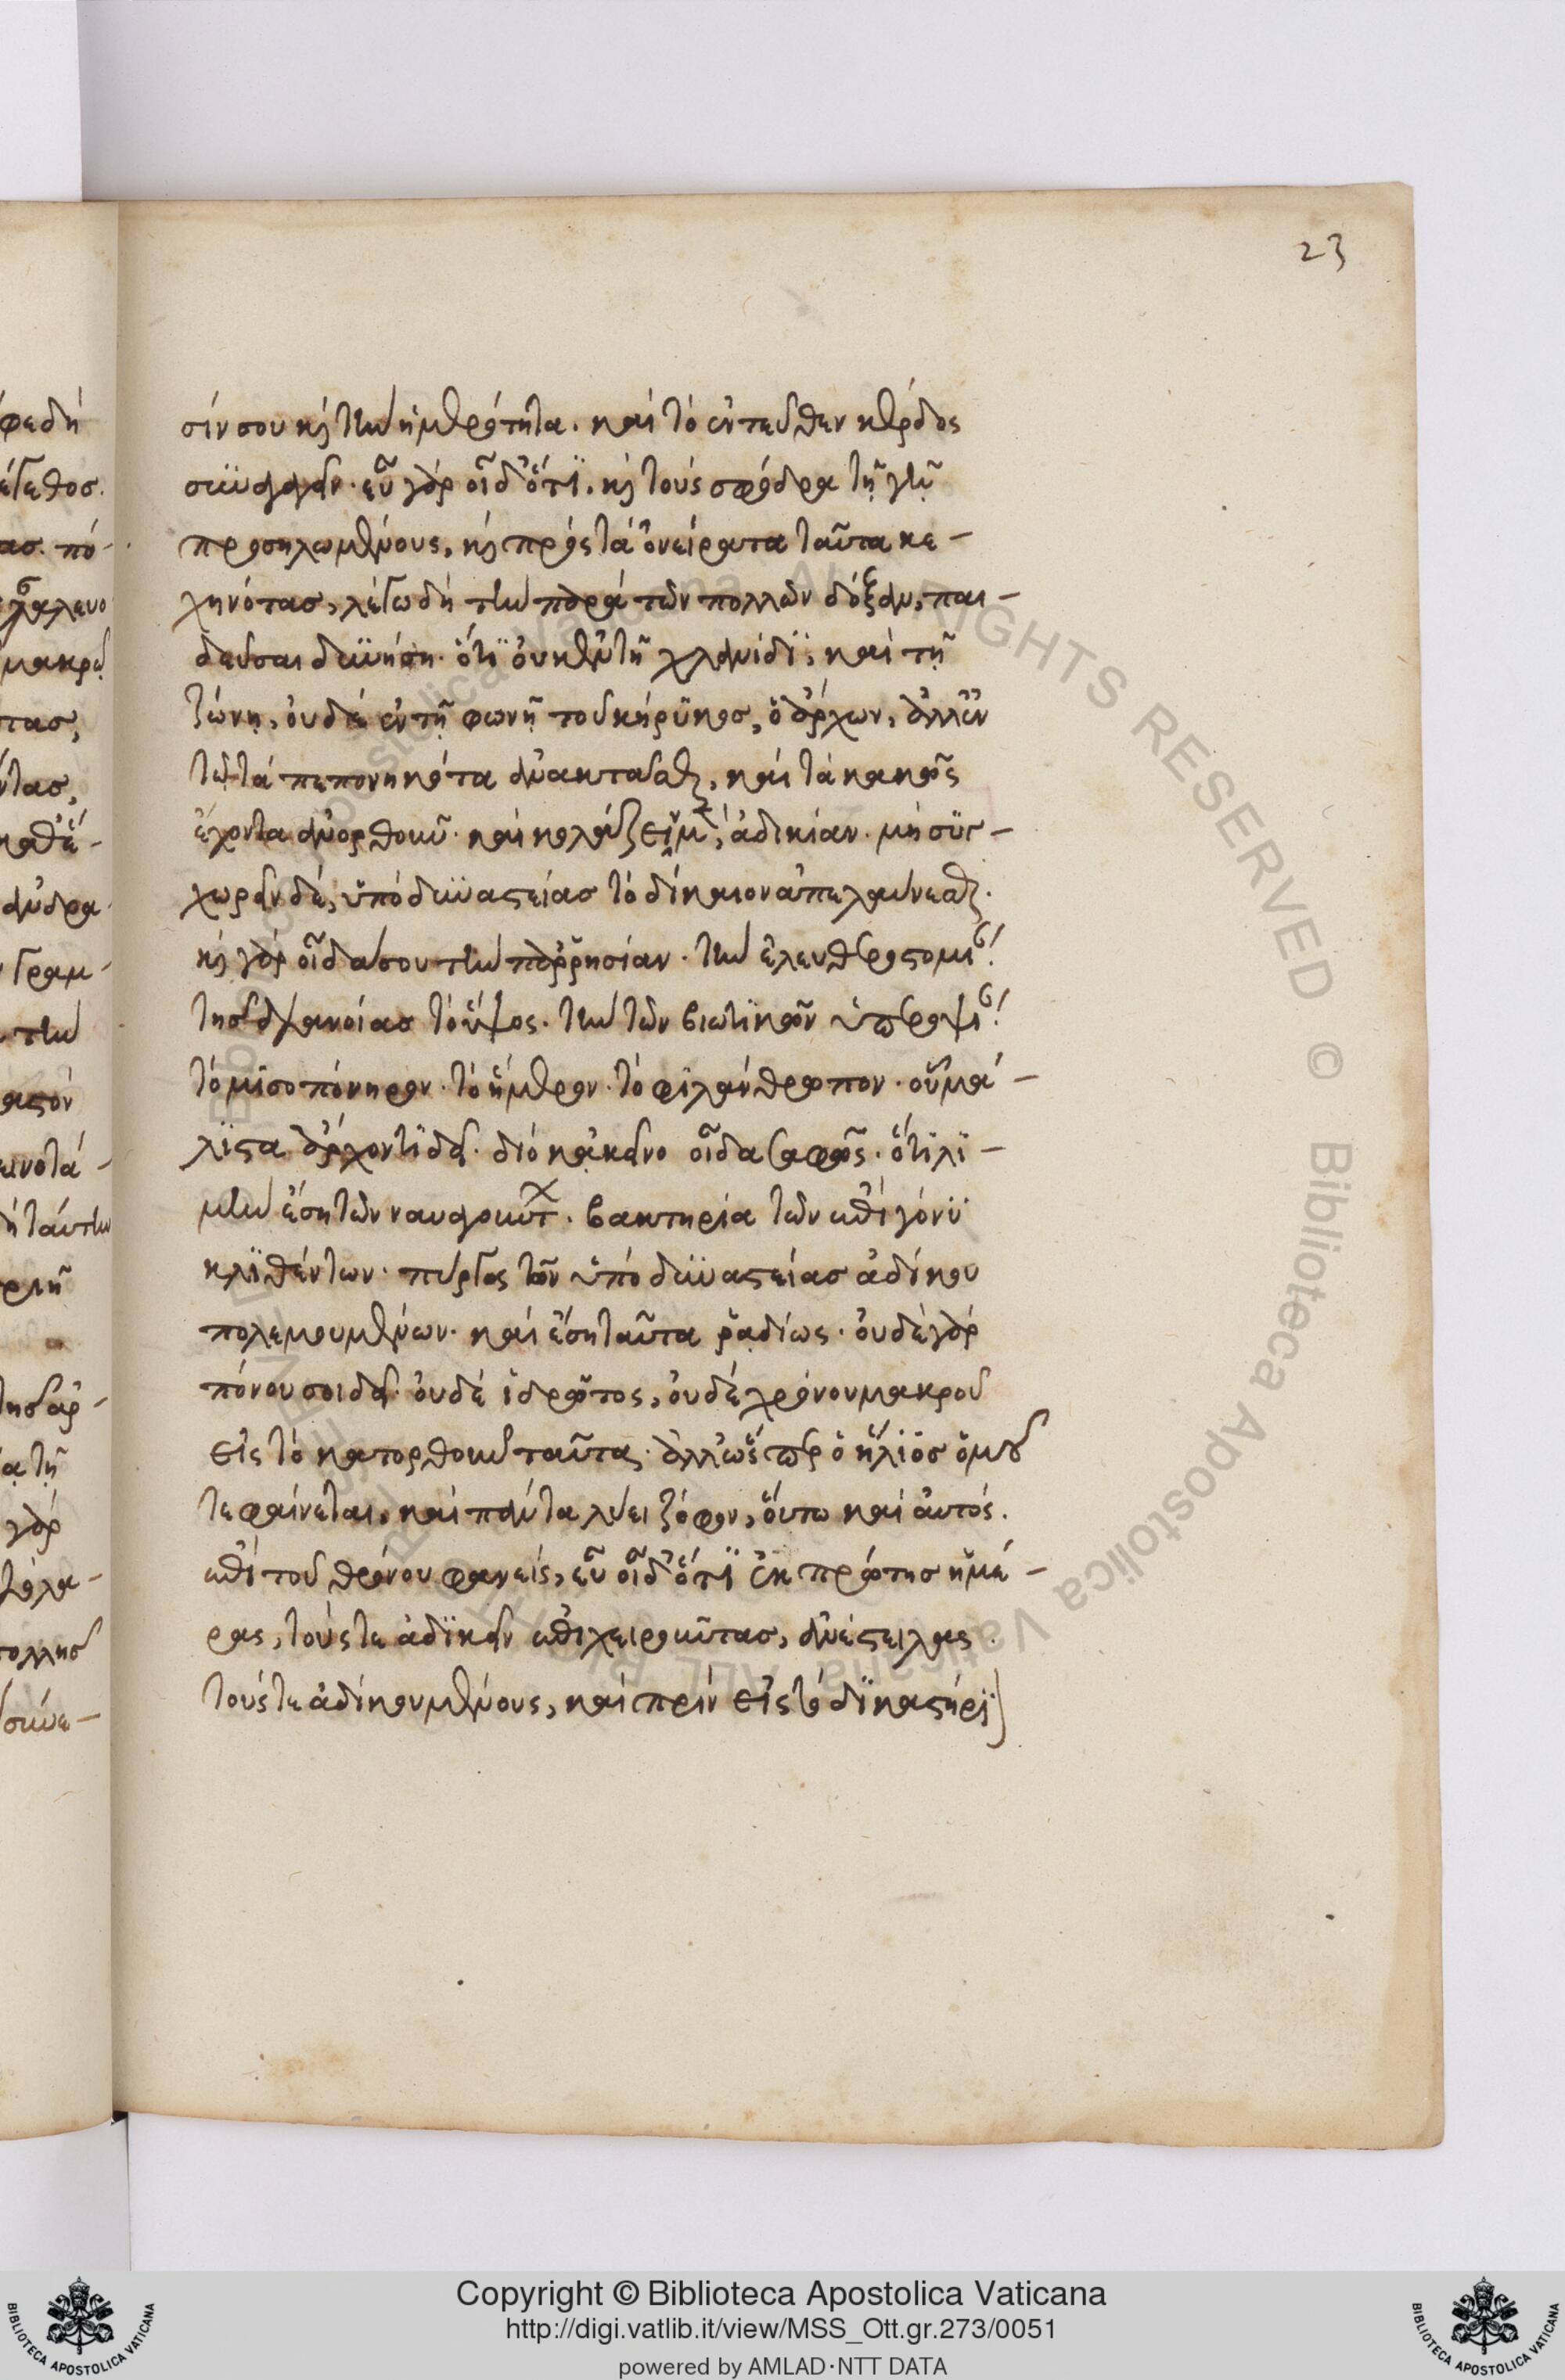 23
σίν σου κὶ τὴν ἡμερότητα. καὶ τὸ ἐντεῦθεν κέρδος
συναγαγεῖν. εὖ γὰρ οἶδ' ὅτι. κὶ τοὺς σφόδρα τῇ γῇ
προσηλωμένους, κὶ πρὸς τὰ ὀνείρατα ταῦτα κε-
χηνότας, λέγω δὴ τὴν παρὰ τῶν πολλῶν δόξαν, παι-
δεῦσαι δυνήσῃ. ὅτι οὐκ ἐν τῇ χλαμίδι, καὶ τῇ
ζώνῃ, οὐδὲ ἐν τῇ φωνῇ τοῦ κήρυκος, ὁ ἄρχων, ἀλλ' ἐν
τῷ τὰ πεπονηκότα ἀνακτᾶσθαι, καὶ τὰ κακῶς
ἔχοντα ἀνορθοῦν. καὶ κολάζειν μὲν ἀδικίαν. μὴ συγ-
χωρεῖν δὲ, ὑπὸ δυναστείας τὸ δίκαιον ἀπελαύνεσθαι.
κὶ γὰρ οἶδα σου τὴν παρρησίαν. τὴν ἐλευθεροστομίαν.
τῆς διανοίας τὸ ὕψος. τὴν τῶν βιωτικῶν ὑπεροψίαν.
τὸ μισοπόνηρον. τὸ ἥμερον. τὸ φιλάνθρωπον. οὗ μά-
λιστα ἄρχοντι δεῖ. διὸ κἀκεῖνο οἶδα σαφῶς. ὅτι λι-
μὴν ἔσῃ τῶν ναυαγούντων. βακτηρία τῶν ἐπὶ γόνυ
κλιθέντων. πύργος τῶν ὑπὸ δυναστείας ἀδίκου
πολεμουμένων. καὶ ἔσῃ ταῦτα ῥαδίως. οὐδὲ γὰρ
πόνου σοι δεῖ. οὐδὲ ἱδρῶτος, οὐδὲ χρόνου μακροῦ
εἰς τὸ κατορθοῦν ταῦτα. ἀλλ' ὥσπερ ὁ ἥλιος ὁμοῦ
τε φαίνεται, καὶ πάντα λύει ζόφον, οὕτω καὶ αὐτός.
ἐπὶ τοῦ θρόνου φανεὶς, εὖ οἶδ' ὅτι ἐκ πρώτης ἡμέ-
ρας, τούς τε ἀδικεῖν ἐπιχειροῦντας, ἀνέστειλας.
τούς τε ἀδικουμένους, καὶ πρὶν εἰς τὸ δικαστήρι
Copyright © Biblioteca Apostolica Vaticana
http://digi.vatlib.it/view/MSS_Ott.gr.273/0051
powered by AMLAD·NTT DATA